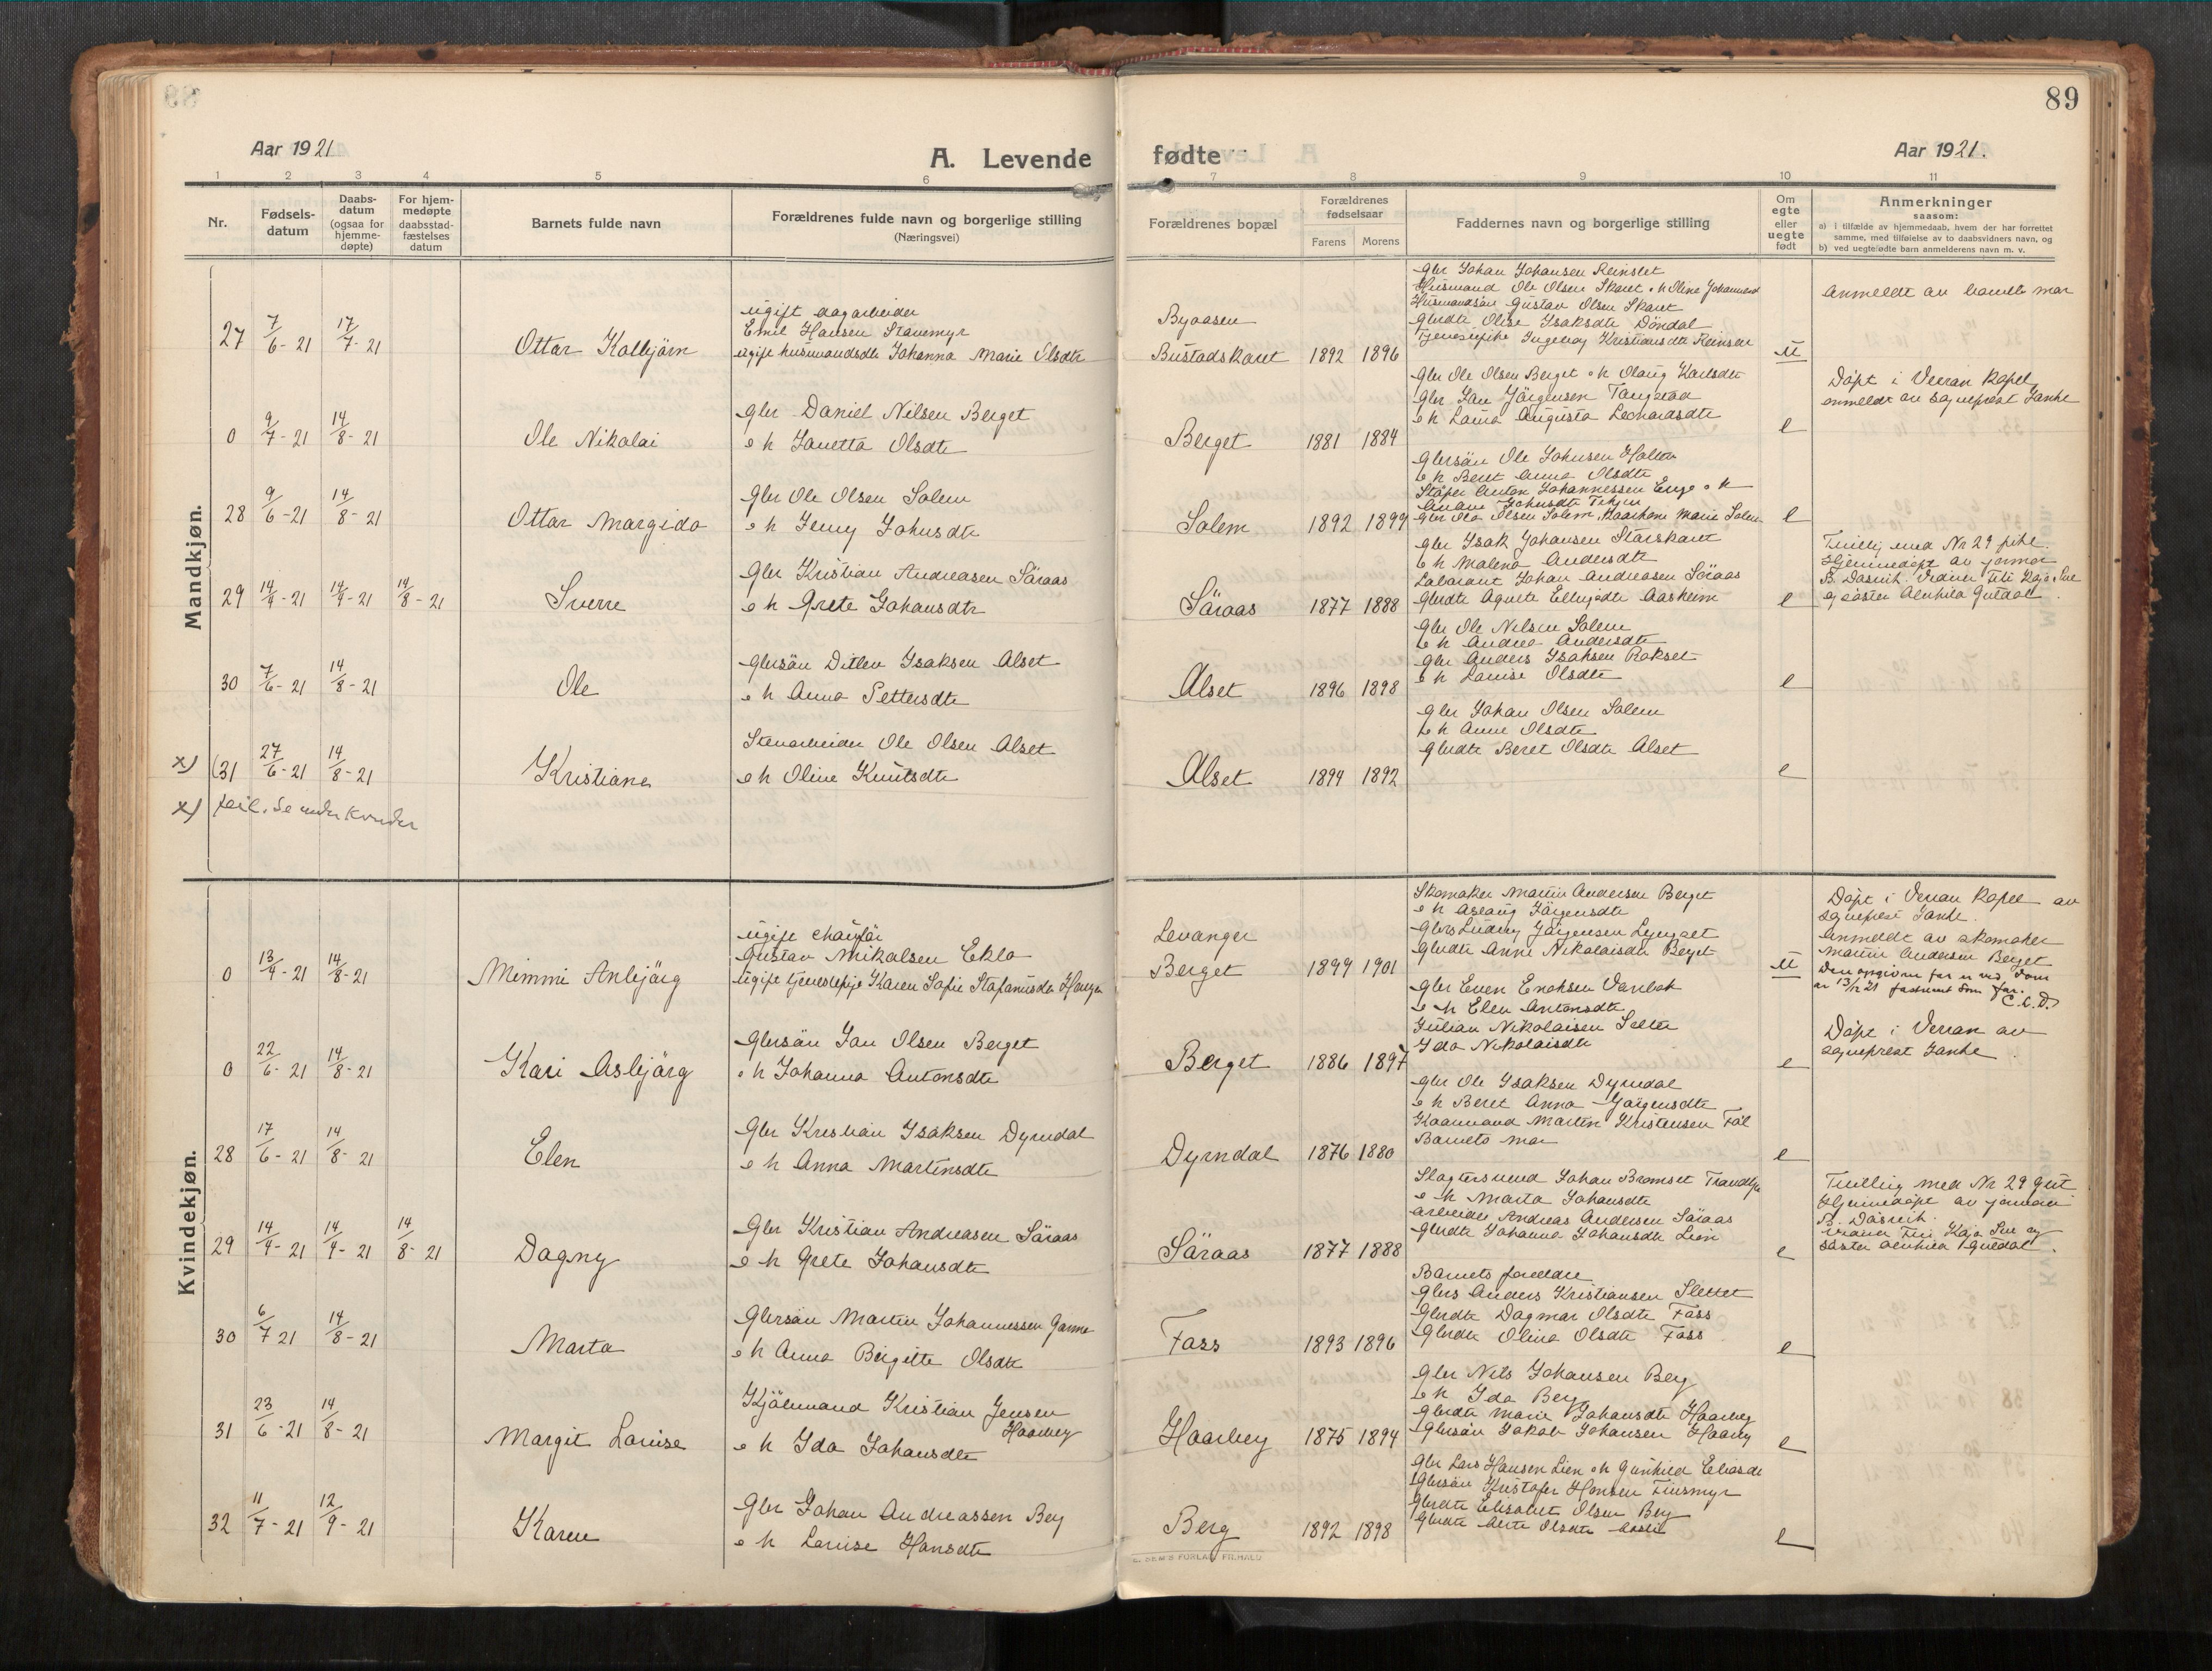 89
Aar 1921
A. Levende fødte
Aar 1921.
1 2 3 4 5 6 7 8 9 10 11
Nr.
Fødsels-
datum
Daabs-
datum
(ogsaa for
hjemme-
døpte)
For hjem-
medøpte
daabsstad-
fæstelses
datum
Barnets fulde navn
Forældrenes fulde navn og borgerlige stilling
(Næringsvei)
Forældrenes bopæl
Forældrenes
fødselsaar
Farens Morens
Faddernes navn og borgerlige stilling
Om
egte
eller
uegte
født
Anmerkninger
saasom:
a) i tilfælde av hjemmedaab, hvem der har forrettet
samme, med tilføielse av to daabsvidners navn, og
b) ved uegtefødte barn anmelderens navn m. v.
Mandkjøn.
27 7/6-21 17/7-21
Ottar Kolbjörn
ugift dagarbeider
Emil Hansen Stavemyr
ugift husmandsdtr Johanna Marie Olsdtr
Byaasen
Bustadskaret 1892 1896
Gbr Johan Johansen Reinslet
Husmand Ole Olsen Skaret
Husmandsön Gustav Olsen Skaret
Gbrdtr Oline Isaksdtr Döndal
Tjenestepike Ingeborg Kristiansdtr
U
Anmeldt av barnets mor
0 9/7-21 14/8-21
Ole Nikolai
Gbr Daniel Nilsen Berget
o h Janetta Olsdtr
Berget 1881 1884
Gbr Ole Olsen Berget o h Olaug Karlsdtr
Gbr Jan Jörgensen Tangstad
o h Laura Augusta Leonardsdtr
e
Döpt i Verran kapel
anmeldt av sogneprest Janke
28 9/6-21 14/8-21
Ottar Margido
Gbr Ole Olsen Solem
o h Jenny Johnsdtr
Solem 1892 1899
Gbrsön Ole Johnsen Holten
o h Beret Anna Olsdtr
Anton Johannessen Enge o h
Gbr Ola Olsen Solem, Marie Solem
e
29 14/4-21 14/4-21 14/8-21
Sverre
Gbr Kristian Andreasen Säraas
o h Grete Johansdtr
Säraas 1877 1888
Gbr Isak Johansen Storskaret
o h Malena Andersdtr
Johan Andreasen Säraas
Gbrdtr Agnete Aasheim
e
Tvilling med Nr 29 pike.
Hjemmedöpt av jormor
B. Dasvik.
30 7/6-21 14/8-21
Ole
Gbrsön Ditlev Isaksen Alset
o h Anna Pettersdtr
Alset 1896 1898
Gbr Ole Nilsen Solem
o h Andrea Andersdtr
Gbr Anders Isaksen Rokset
o h Louise Olsdtr
e
x) (31 27/6-21 14/8-21
Kristiane
Stenarbeider Ole Olsen Alset
o h Oline Knutsdtr
Alset 1894 1892
Gbr Johan Olsen Solem
o h Anne Olsdtr
Gbrdtr Beret Olsdtr Alset
e
x) feil. Se under Kvinder
Kvindekjøn.
0 13/4-21 14/8-21
Mimmi Anbjörg
ugift chauför
Gustav Mikalsen Eklo
ugift tjenestepige Karen Sofie Stefanusdtr Haugen
Levanger
Berget 1899 1901
Skomaker Martin Andersen Berget
o h Aslaug Jörgensdtr
Gbrs Ludvig Jörgensen
Gbrdtr Anne Nikolaisdtr Berget
U
Döpt i Verran kapel av
sogneprest Janke.
Anmeldt av skomaker
Martin Andersen Berget
Den opgivne far er ved dom
av 13/12 21 fastsat som far.
0 22/6-21 14/8-21
Kari Asbjörg
Gbrsön Jan Olsen Berget
o h Johanna Antonsdtr
Berget 1886 1897
Gbr Even Vanbak
o h Elen Antonsdtr
Julian Nikolaisen
Ida Nikolaisdtr
e
Döpt i Verran av
sogneprest Janke.
28 17/6-21 14/8-21
Elen
Gbr Kristian Isaksen Dyrndal
o h Anna Martinsdtr
Dyrndal 1876 1880
Gbr Ole Isaksen Dyrndal
o h Beret Anna Jörgensdtr
Kaarmand Martin Kristensen
Barnets mor
e
29 14/4-21 14/4-21 14/8-21
Dagny
Gbr Kristian Andreasen Säraas
o h Grete Johansdtr
Säraas 1877 1888
Slagtersvend Johan Bromset
o h Marta Johansdtr
arbeider Andreas Andersen Säraas
Gbrdtr Johanna Johansdtr Lien
e
Tvilling med Nr 29 gut
Hjemmedöpt av jormor
B. Dasvik.
30 6/7 21 14/8-21
Marta
Gbrsön Martin Johannessen
o h Anna Birgitte Olsdtr
Fass 1893 1896
Barnets foreldre
Gbrs Anders Kristiansen Slettet
Gbrdtr Dagmar Olsdtr Fass
Gbrdtr Oline Olsdtr Fass
e
31 23/6-21 14/8-21
Margit Louise
Kristian Jensen
Haarberg
o h Ida Johansdtr
Haarberg 1875 1894
Gbr Nils Johansen Berg
o h Ida Berg
Gbrdtr Marie Johansdtr Haarberg
Gbrsön Jakob Johansen Haarberg
e
32 11/7-21 12/9-21
Karen
Gbr Johan Andreassen Berg
o h Louise Hansdtr
Berg 1892 1898
Gbr Lars Hansen Lien o h Gunhild Eliasdtr
Gbrsön Kristofer Hansen Finsmyr
Gbrdtr Elisabet Olsen Berg
Gbrdtr Olsdtr
e